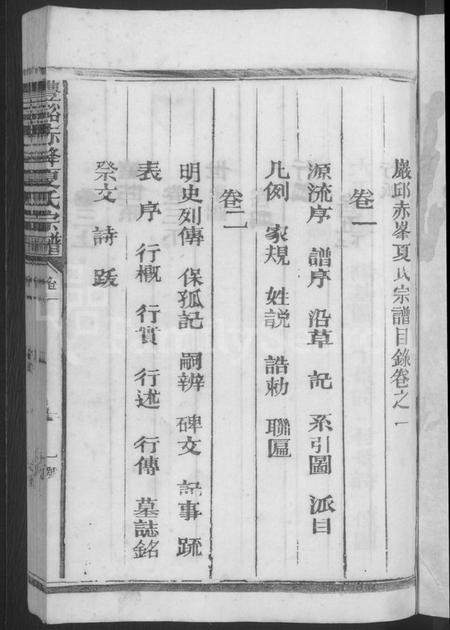 巖邱赤峯夏氏宗譜目錄卷之一
卷一
源流序 譜序 沿革 記 系引圖 派目
凡例 家規 姓説 誥勅 聯匾
卷二
明史列傳 保孤記 嗣辨 碑文 記事 疏
表 序 行概 行實 行述 行傳 墓誌銘
祭文 詩 跋
豐谿赤峰夏氏宗譜